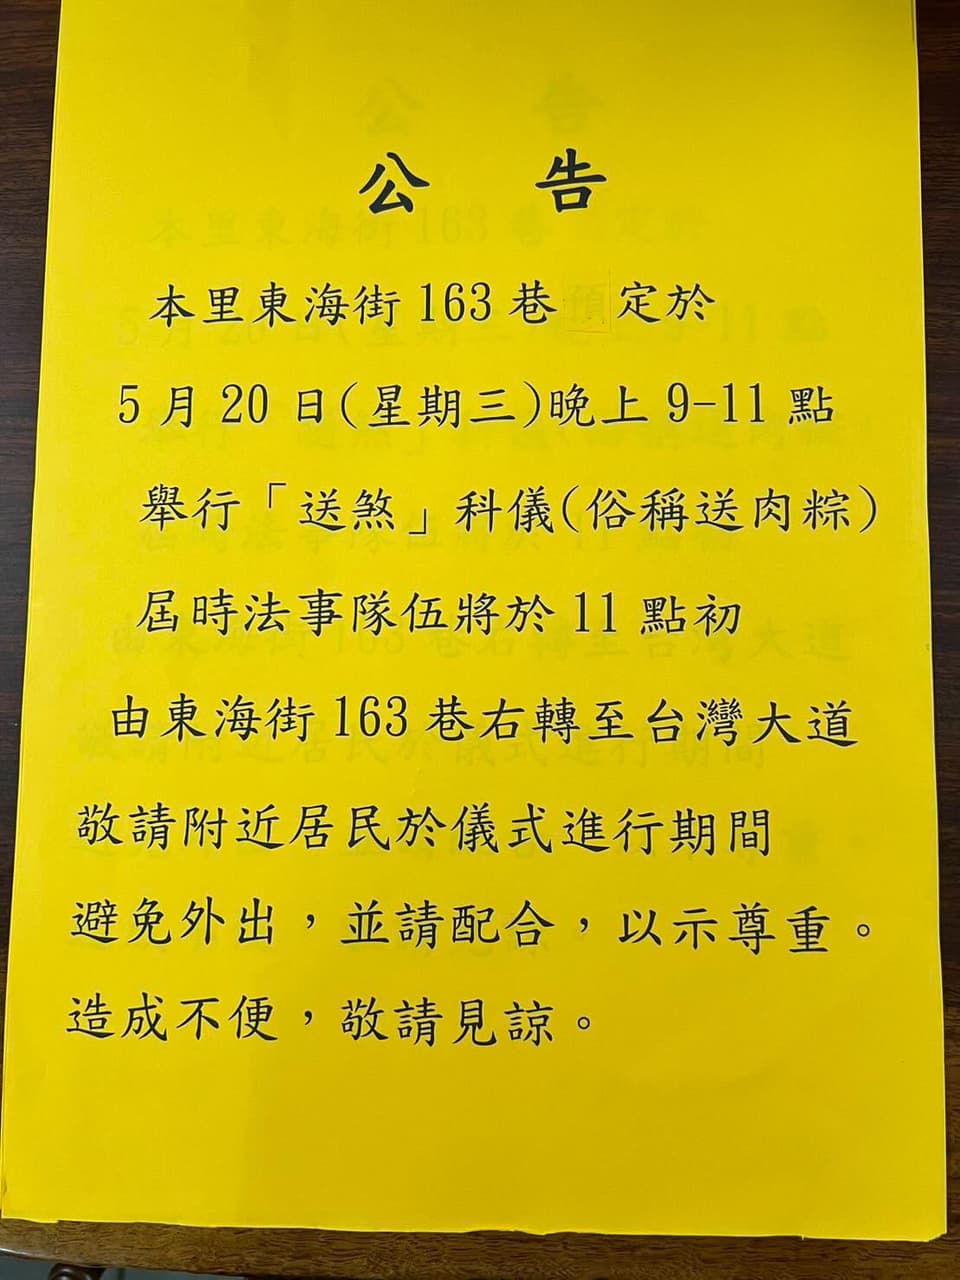 公告
本里東海街163巷預定於
5月20日(星期三)晚上9-11點
舉行「送煞」科儀(俗稱送肉粽)
屆時法事隊伍將於11點初
由東海街163巷右轉至台灣大道
敬請附近居民於儀式進行期間
避免外出，並請配合，以示尊重。
造成不便，敬請見諒。